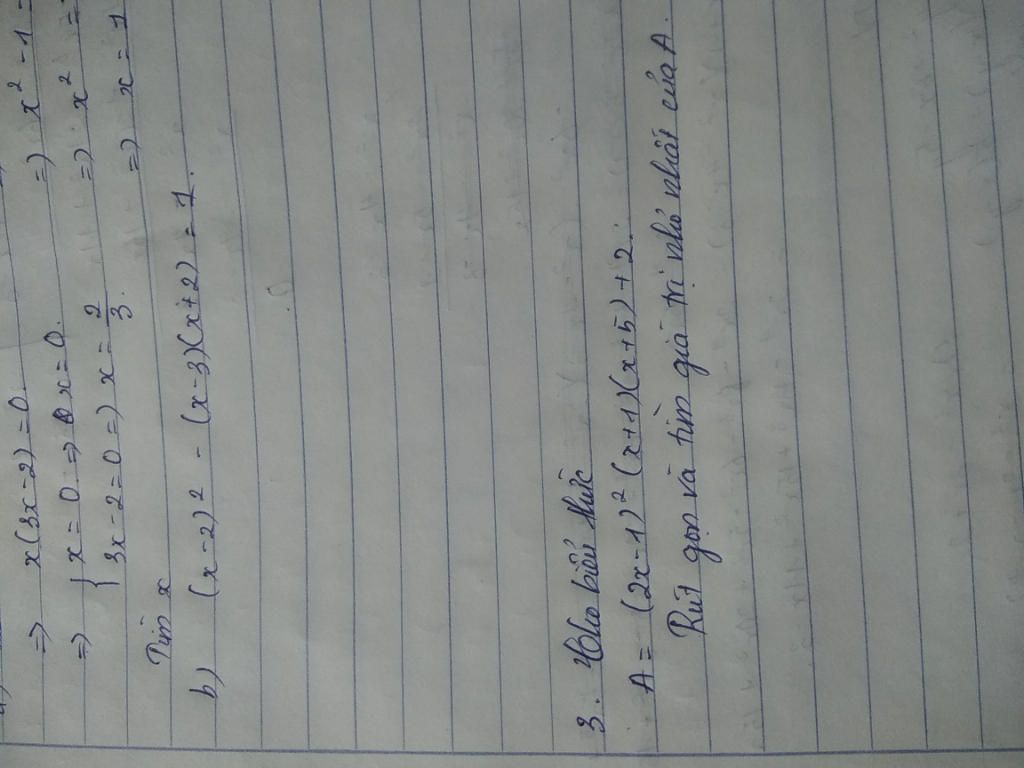 => x(3x-2)=0. => x² - 1 =
=> { x = 0 => x = 0. => x² =
3x-2=0 => x = 2/3. => x = 1
Tìm x
b) (x-2)² - (x-3)(x+2) = 1.
3. Cho biểu thức
A = (2x-1)² (x+1)(x+5) + 2.
Rút gọn và tìm giá trị nhỏ nhất của A.